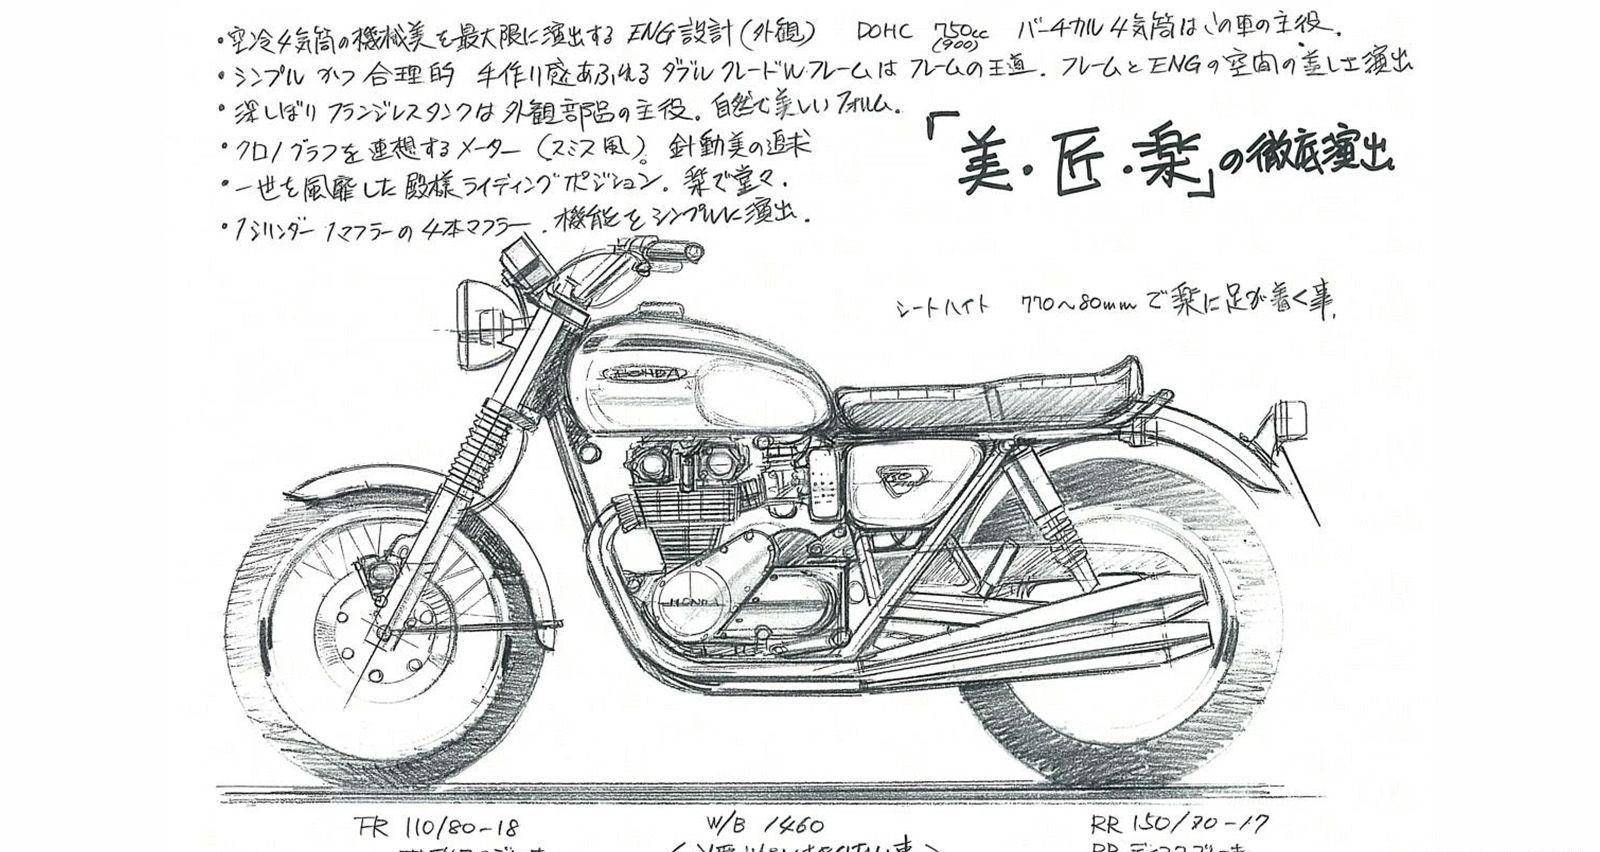 ・空冷4気筒の機械美を最大限に演出する ENG設計(外観) DOHC 750cc バーチカル4気筒はこの車の主役.
(900)
・シンプル かつ 合理的 手作り感あふれる ダブルクレードルフレームは フレームの王道. フレームとENGの空間の美しさ演出
・深しぼり フランジレスタンクは外観部品の主役. 自然で美しいフォルム.
・クロノグラフを連想するメーター(スミス風)。針動美の追求
・一世を風靡した殿様ライディングポジション. 楽で堂々.
・1シリンダー 1マフラーの 4本マフラー. 機能をシンプルに演出.
「美・匠・楽」の徹底演出
シートハイト 770〜80mmで楽に足が着く事.
HONDA
750
HONDA
FR 110/80-18
W/B 1460
RR 150/70-17
RR ディスクブレーキ